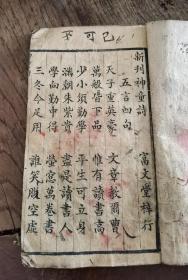 不可已
新刊神童詩
富文堂梓行
五言四句
天子重英豪
文章教爾曹
萬般皆下品
惟有讀書高
少小須勤學
平生可立身
滿朝朱紫貴
盡是讀書人
學向勤中得
螢窓萬卷書
三冬今足用
誰笑腹空虛